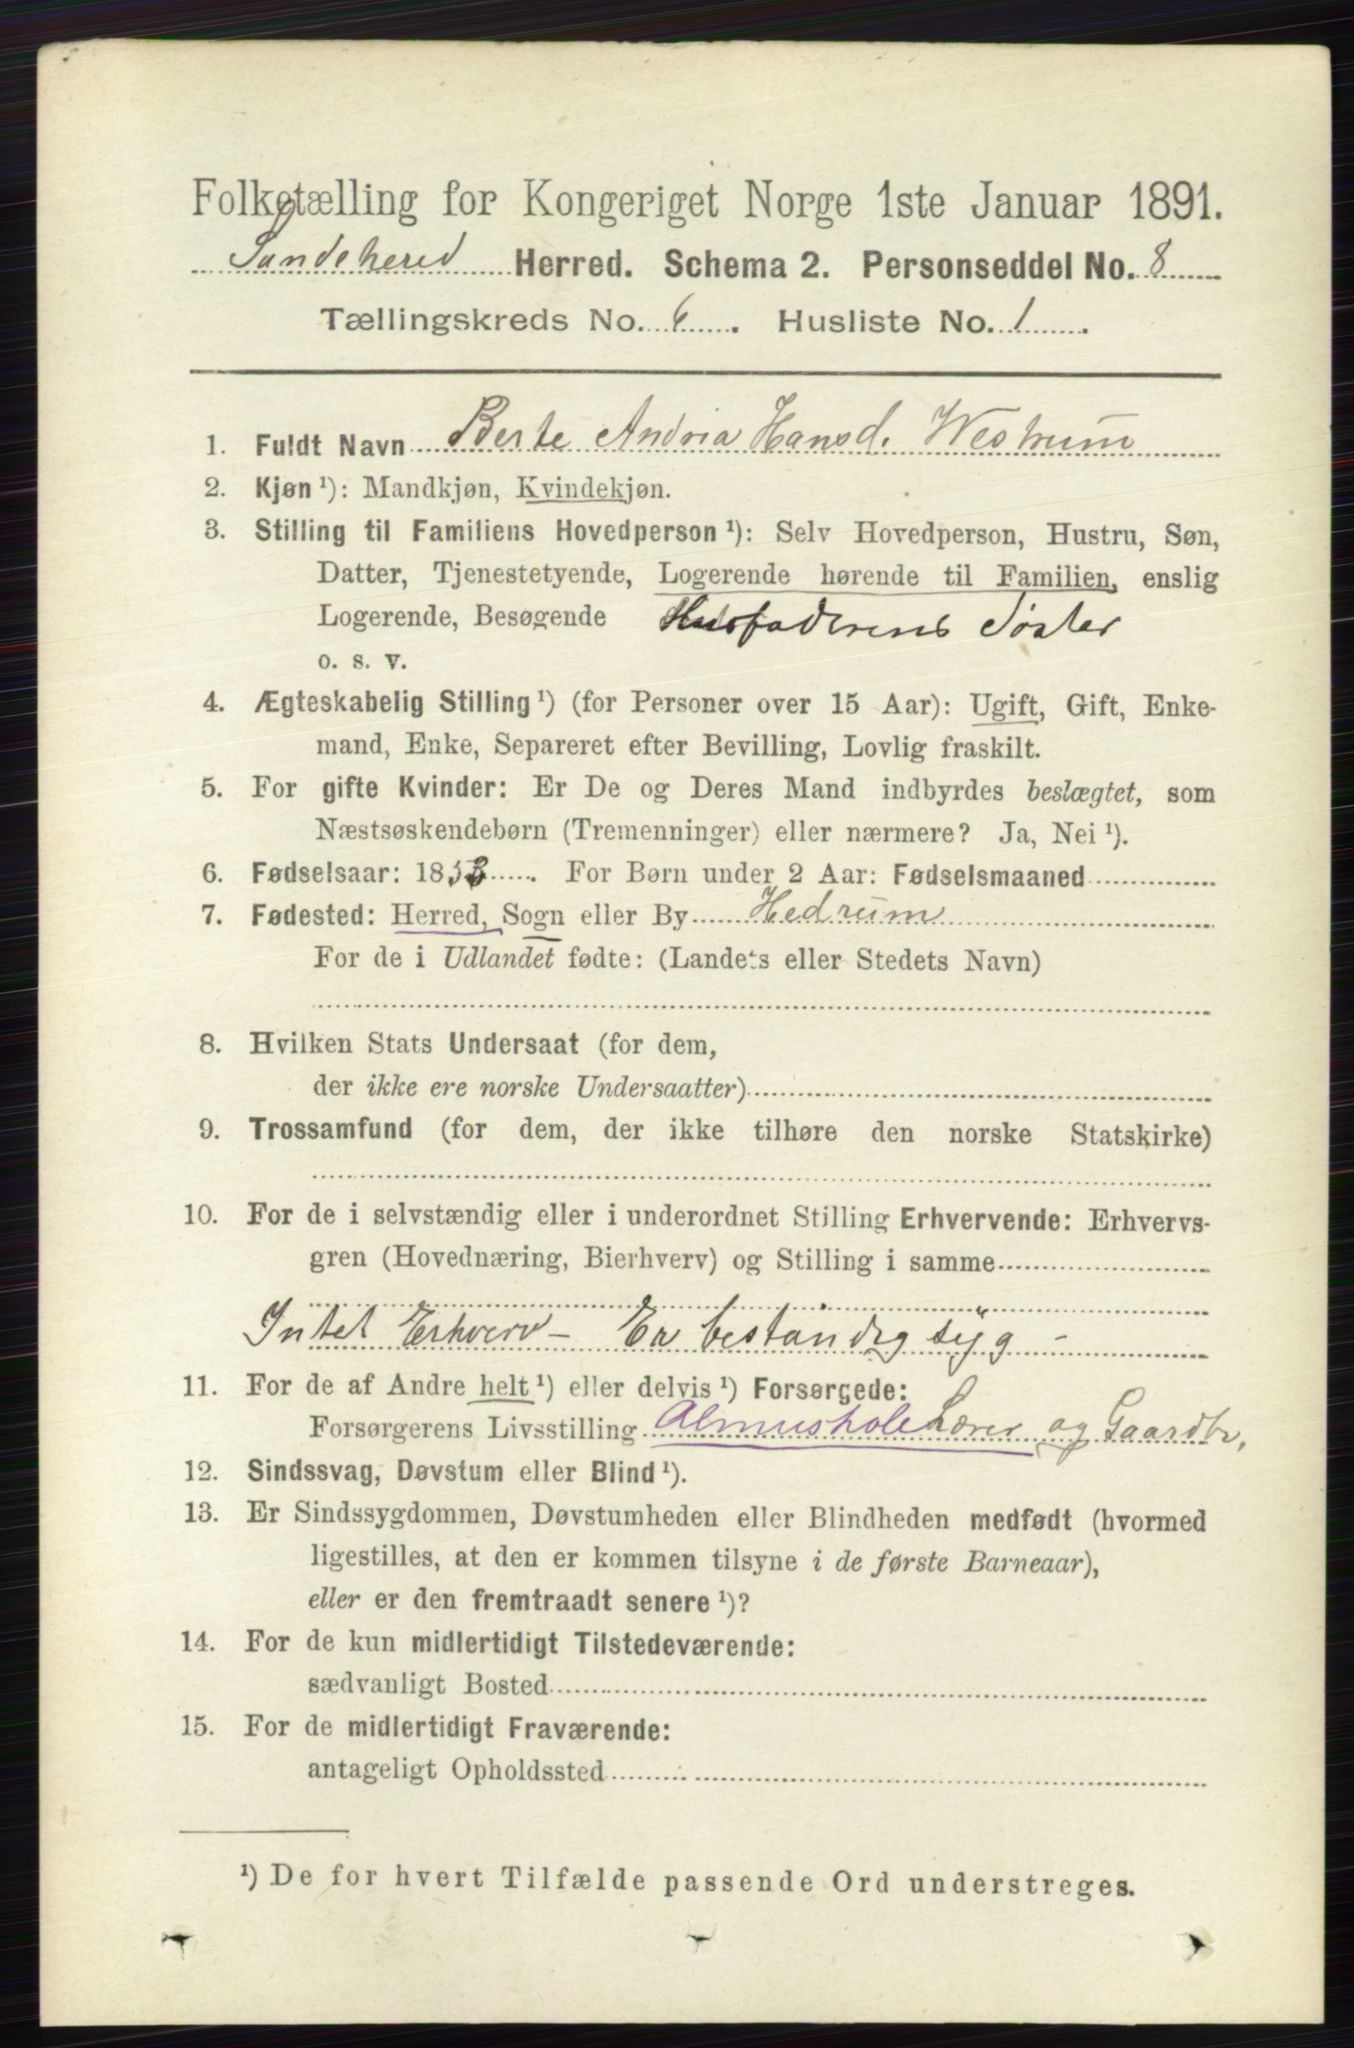 Folketælling for Kongeriget Norge 1ste Januar 1891.
Sandeherred Herred. Schema 2. Personseddel No. 8
Tællingskreds No. 6. Husliste No. 1.
1. Fuldt Navn Berte Andria Hansd. Westrum
2. Kjøn ¹): Mandkjøn, Kvindekjøn.
3. Stilling til Familiens Hovedperson ¹): Selv Hovedperson, Hustru, Søn,
Datter, Tjenestetyende, Logerende hørende til Familien, enslig
Logerende, Besøgende Husfaderens Søster
o. s. v.
4. Ægteskabelig Stilling ¹) (for Personer over 15 Aar): Ugift, Gift, Enke-
mand, Enke, Separeret efter Bevilling, Lovlig fraskilt.
5. For gifte Kvinder: Er De og Deres Mand indbyrdes beslægtet, som
Næstsøskendebørn (Tremenninger) eller nærmere? Ja, Nei ¹).
6. Fødselsaar: 1853. For Børn under 2 Aar: Fødselsmaaned
7. Fødested: Herred, Sogn eller By Hedrum
For de i Udlandet fødte: (Landets eller Stedets Navn)
8. Hvilken Stats Undersaat (for dem,
der ikke ere norske Undersaatter)
9. Trossamfund (for dem, der ikke tilhøre den norske Statskirke)
10. For de i selvstændig eller i underordnet Stilling Erhvervende: Erhvervs-
gren (Hovednæring, Bierhverv) og Stilling i samme
Intet Erhverv - Er bestandig syg -
11. For de af Andre helt ¹) eller delvis ¹) Forsørgede:
Forsørgerens Livsstilling Almueskole Lærer og Gaardbr.
12. Sindssvag, Døvstum eller Blind ¹).
13. Er Sindssygdommen, Døvstumheden eller Blindheden medfødt (hvormed
ligestilles, at den er kommen tilsyne i de første Barneaar),
eller er den fremtraadt senere ¹)?
14. For de kun midlertidigt Tilstedeværende:
sædvanligt Bosted
15. For de midlertidigt Fraværende:
antageligt Opholdssted
¹) De for hvert Tilfælde passende Ord understreges.